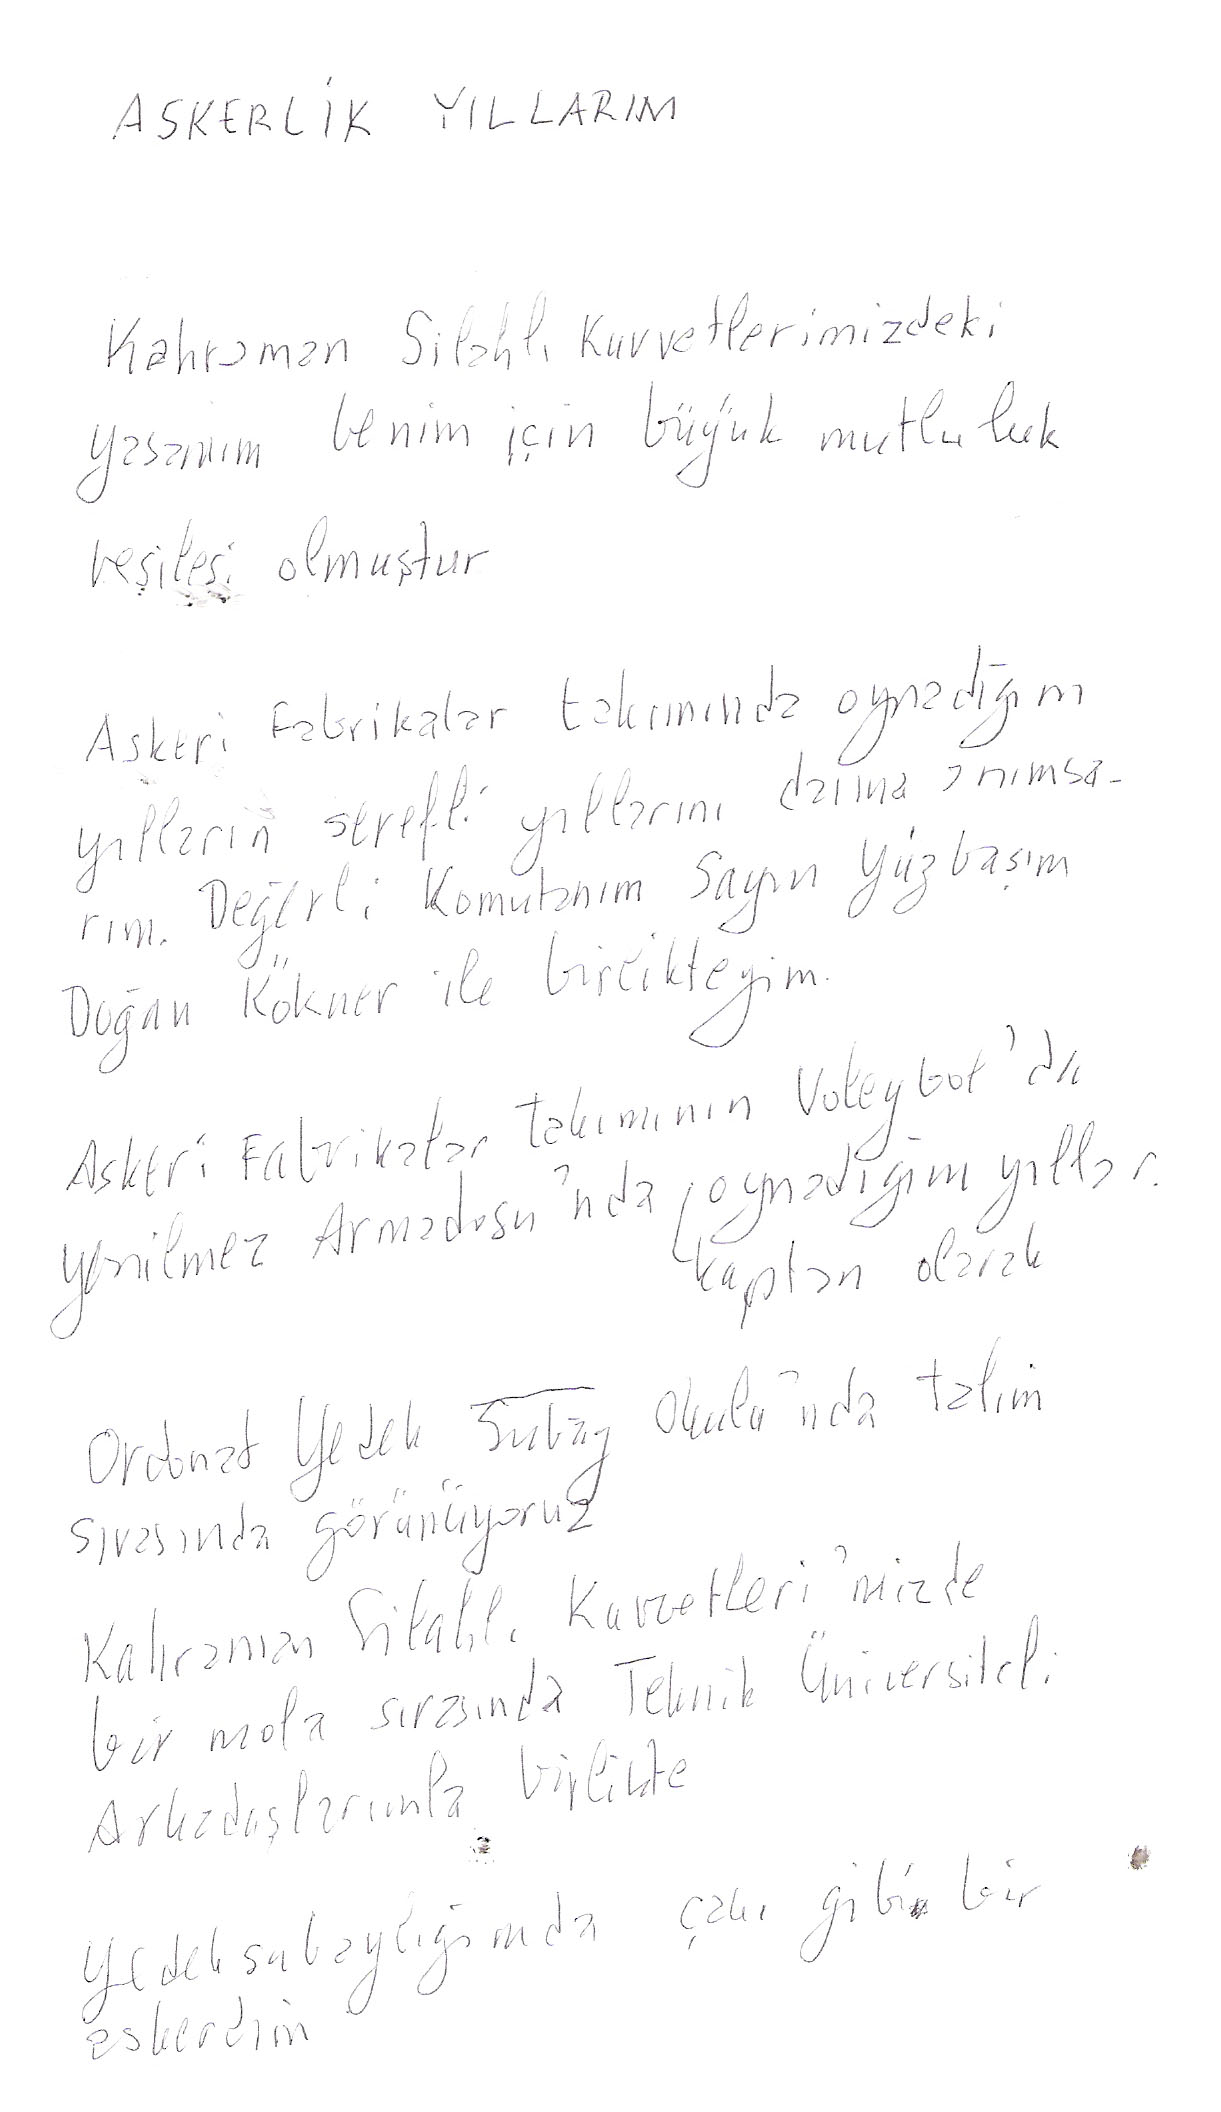 ASKERLİK YILLARIM
Kahraman Silahlı Kuvvetlerimizdeki
yaşamım benim için büyük mutluluk
veşilesi olmuştur
Askeri Fabrikalar takımında oynadığım
yılların şerefli yıllarını daima anımsa-
rım. Değerli Komutanım Sayın Yüzbaşım
Doğan Kökner ile birlikteyim.
Askeri Fabrikalar takımının Voleybol'da
yenilmez Armadosu'nda oynadığım yıllar.
kaptan olarak
Ordonat Yedek Subay Okulu'nda talim
sırasında görünüyoruz
Kahraman Silahlı Kuvvetleri'mizde
bir mola sırasında Teknik Üniversiteli
Arkadaşlarımla birlikte
Yedeksubaylığımda çakı gibi bir
askerdim